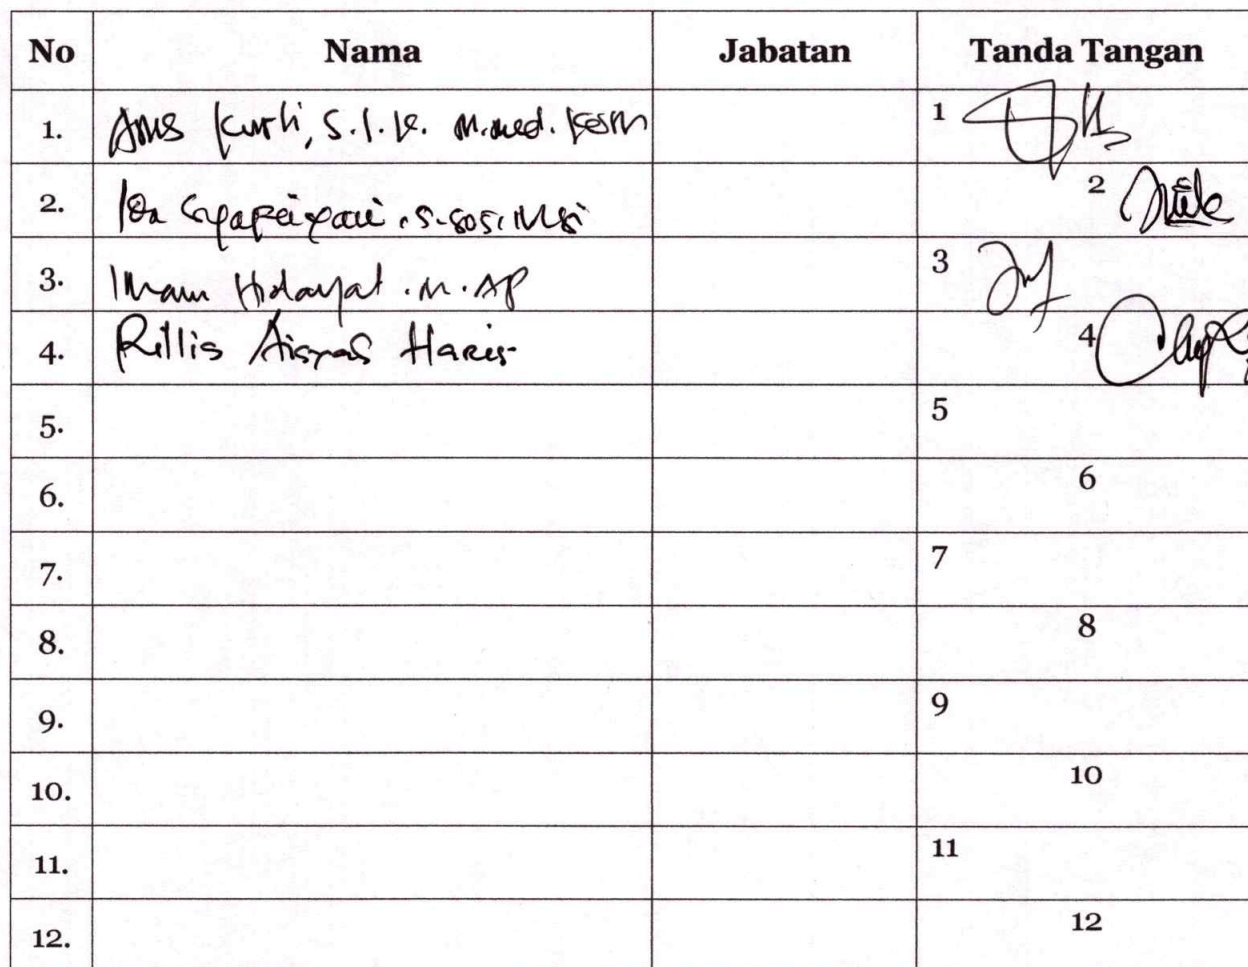 No Nama Jabatan Tanda Tangan
1. Kurti, S.I.K. M.Med.Kom 1
2. Ida S.Sos, M.Si 2
3. Imam Hidayat . M . AP 3
4. Rillis Aisyas Haris 4
5. 5
6. 6
7. 7
8. 8
9. 9
10. 10
11. 11
12. 12